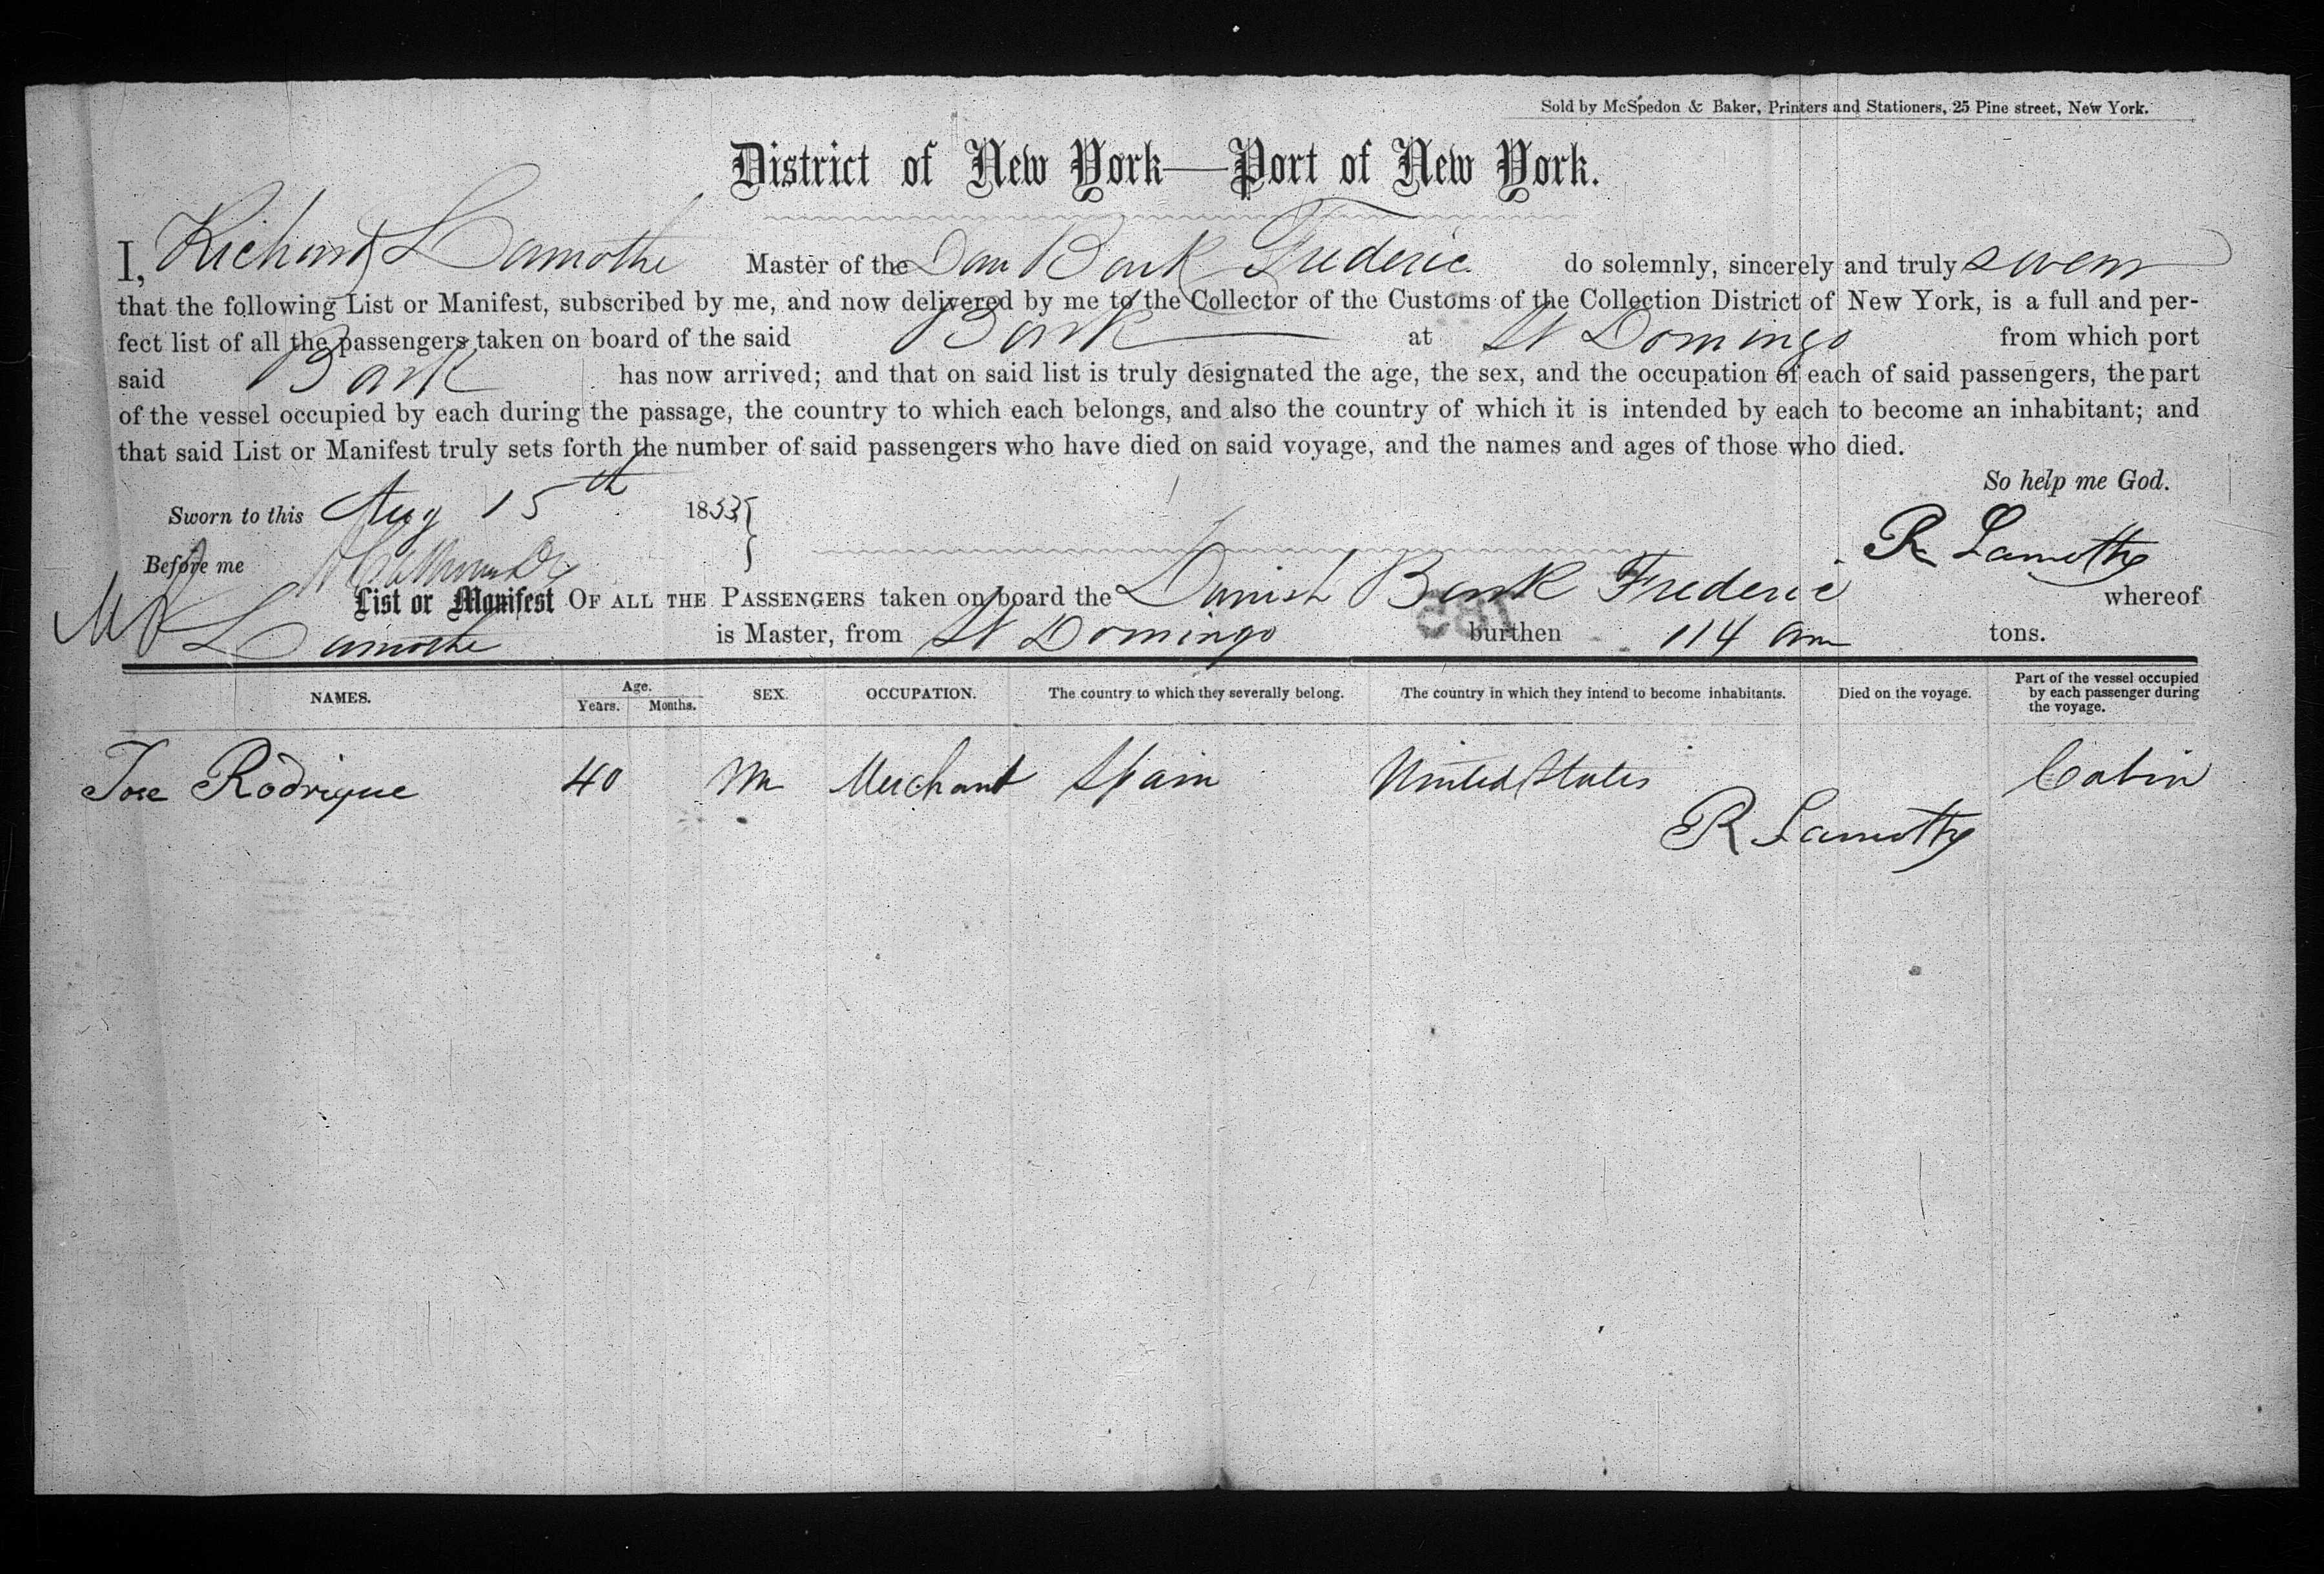 Sold by McSpedon & Baker, Printers and Stationers, 25 Pine street, New York.
District of New York—Port of New York.
I, Richard Lamothe Master of the Dan Bark Frederic do solemnly, sincerely and truly swear
that the following List or Manifest, subscribed by me, and now delivered by me to the Collector of the Customs of the Collection District of New York, is a full and per-
fect list of all the passengers taken on board of the said Bark at St Domingo from which port
said Bark has now arrived; and that on said list is truly designated the age, the sex, and the occupation of each of said passengers, the part
of the vessel occupied by each during the passage, the country to which each belongs, and also the country of which it is intended by each to become an inhabitant; and
that said List or Manifest truly sets forth the number of said passengers who have died on said voyage, and the names and ages of those who died.
So help me God.
Sworn to this Aug 15th 1853
R Lamothe
Before me
List or Manifest OF ALL THE PASSENGERS taken on board the Danish Bark Frederic whereof
Lamothe is Master, from St Domingo burthen 114 tons.
NAMES. Age. Years. Months. SEX. OCCUPATION. The country to which they severally belong. The country in which they intend to become inhabitants. Died on the voyage. Part of the vessel occupied by each passenger during the voyage.
Jose Rodrigue 40 M Merchant Spain United States Cabin
R Lamothe